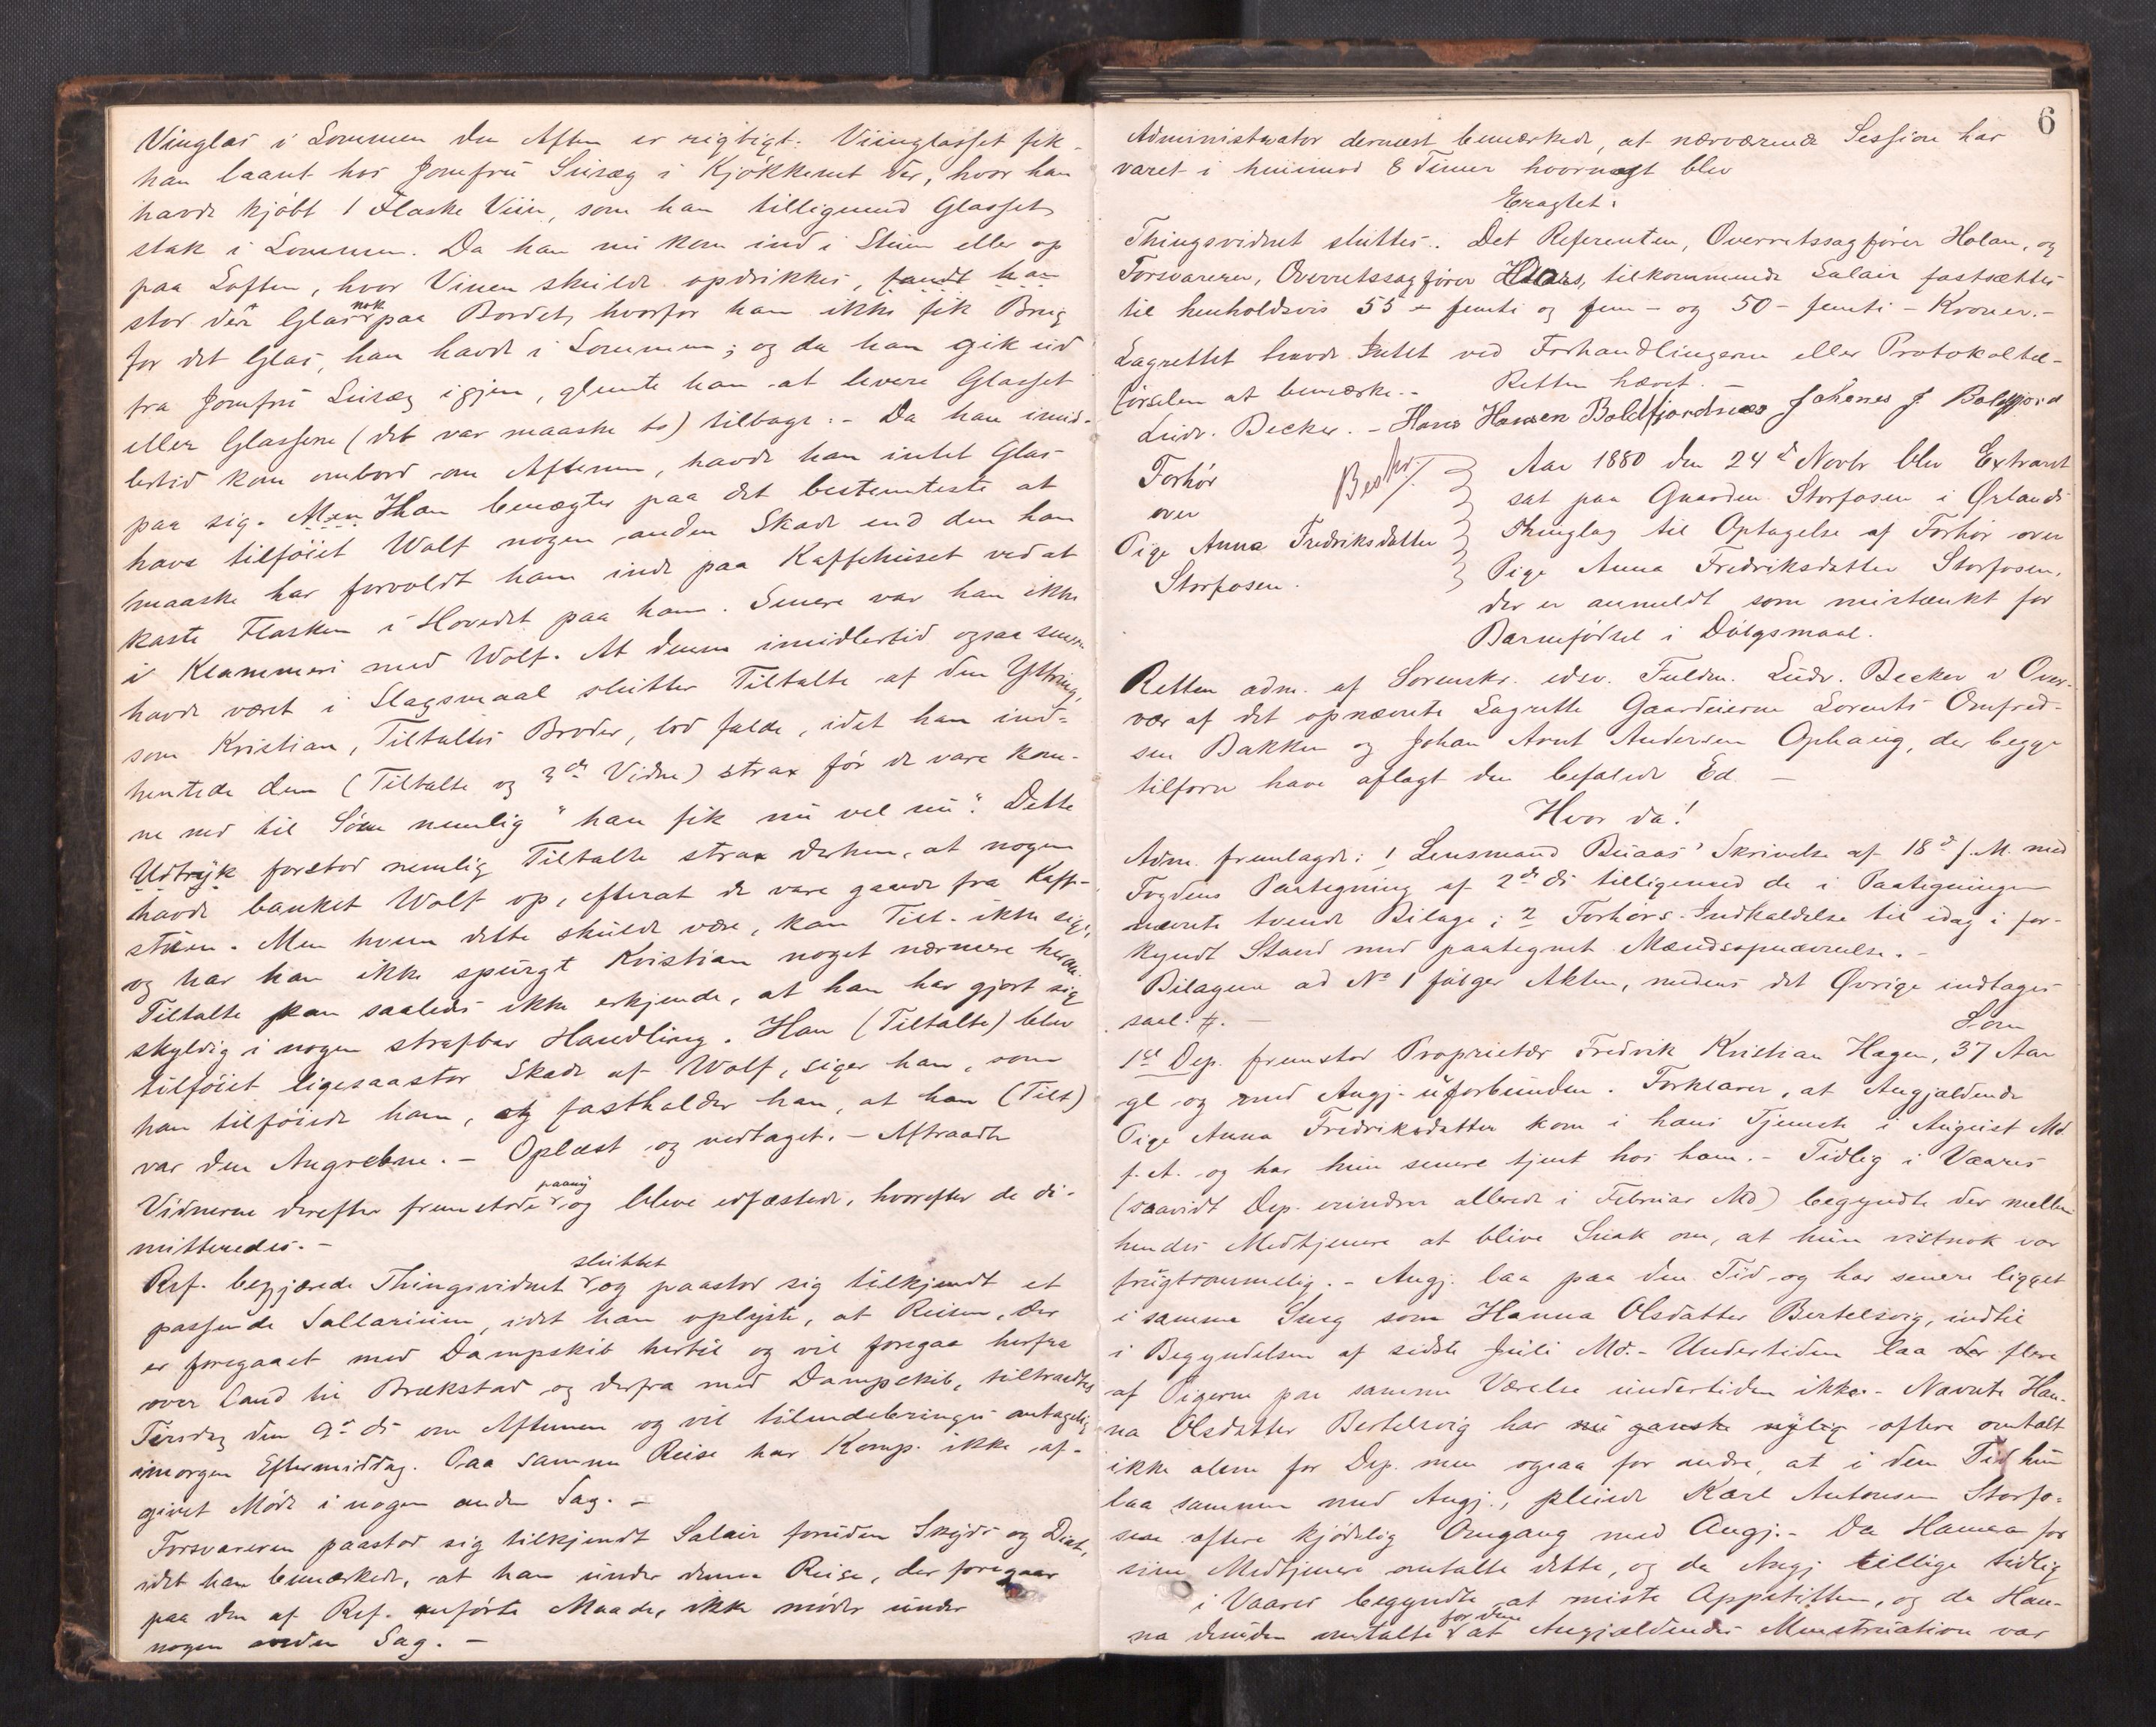 Vinglas i Lommen den Aften er rigtigt. Viinglasset fik
han laant hos Jomfru Siisæg i Kjøkkenet der, hvor han
havde kjøbt 1 Flaske Viin, som han tilligemed Glasset
stak i Lommen. Da han nu kom ind i Stuen eller op
paa Loftem, hvor Vinen skulde opdrikkes, fandt han
stod der Glas nok paa Bordet, hvorfor han ikke fik Brug
for det Glas, han havde i Lommen; og da han gik ud
fra Jomfru igjen, glemte han at levere Glasset
eller Glassene (det var maaske to) tilbage. - Da han imid-
lertid kom ombord om Aftenen, havde han intet Glas
paa sig. Men Han benægter paa det bestemteste at
have tilføiet Wolf nogen anden Skade end den han
maaske har forvoldt ham inde paa Kaffehuset ved at
kaste Flasken i Hovedet paa ham. Senere var han ikke
i Klammeri med Wolf. At denne imidlertid ogsaa senere
havde været i Slagsmaal slutter Tiltalte af den Yttring,
som Kristian, Tiltaltes Broder, lod falde, idet han ind-
hentede dem (Tiltalte og 3die Vidne) strax før de vare kom-
ne ned til Søen nemlig "han fik nu vel nu". Dette
Udtryk forstod nemlig Tiltalte strax derhen, at nogen
havde banket Wolf op, efterat de vare gaaede fra Kaffe-
stuen. Men hvem dette skulde være, kan Tilt. ikke sige,
og har han ikke spurgt Kristian noget nærmere herom.
Tiltalte kan saaledes ikke erkjende, at han har gjort sig
skyldig i nogen strafbar Handling. Han (Tiltalte) blev
tilføiet ligesaastor Skade af Wolf, siger han, som
han tilføiede ham, og fastholder han, at han (Tilt)
var den Angrebne. - Oplæst og vedtaget. - Aftraadte
Vidnerne derefter fremstode paany og bleve edfæstede, hvorefter de di-
mitteredes. -
Ref. begjærede Thingsvidnet sluttet og paastod sig tilkjendt et
passende Sallarium, idet han oplyste, at Reisen, der
er foregaaet med Dampskib hertil og vil foregaa herfra
over Land til Brækstad og derfra med Dampskib, tiltraadtes
Tirsdag den 9de ds om Aftenen og vil tilendebringes antagelig
imorgen Eftermiddag. Paa samme Reise har Komp. ikke af-
givet Møde i nogen anden Sag. -
Forsvareren paastod sig tilkjendt Salair foruden Skyds og Diæt,
idet han bemærkede, at han under denne Reise, der foregaar
paa den af Ref. anførte Maade, ikke møder under
nogen anden Sag. -
6
Administrator dernæst bemærkede, at nærværende Session har
varet i henimod 8 Timer hvornæst blev
Eragtet:
Thingsvidnet sluttes. Det Referenten, Overretssagfører Holan, og
Forsvareren, Overretssagfører tilkommende Salair fastsættes
til henholdsvis 55 - femti og fem - og 50 - femti - Kroner. -
Lagrettet havde Intet ved Forhandlingerne eller Protokoltil-
førselen at bemærke. - Retten hævet. -
Ludv. Becker. - Hans Hansen Boldfjordnæs Johanes J. Boldfjord
Forhør
over
Pige Anna Fredriksdatter
Storfosen.
Beskr.
Aar 1880 den 24de Novbr blev Extraret
sat paa Gaarden Storfosen i Ørlands
Thinglag til Optagelse af Forhør over
Pige Anna Fredriksdatter Storfosen,
der er anmeldt som mistænkt for
Barnefødsel i Dølgsmaal.
Retten adm. af Sorenskr. edsv. Fuldm. Ludv. Becker i Over-
vær af det opnævnte Lagrette Gaardeierne Lorents Omfred-
sen Bakken og Johan Arnt Andersen Ophaug, der begge
tilforn have aflagt den befalede Ed. -
Hvor da!
Adm. fremlagde: 1 Lensmand Buaas' Skrivelse af 18de f. M. med
Fogdens Paategning af 2den ds tilligemed de i Paategningen
nævnte tvende Bilage; 2 Forhørs-Indkaldelse til idag i for-
kyndt Stand med paategnet Mændsopnævnelse. -
Bilagene ad No 1 følger Akten, medens det Øvrige indtages
saal. #. -
Som
1ste Dep. fremstod Proprietær Fredrik Kristian Hagen, 37 Aar
gl. og med Angj. uforbunden. Forklarer, at Angjældende
Pige Anna Fredriksdatter kom i hans Tjeneste i August Md
f. A. og har hun senere tjent hos ham. - Tidlig i Vaares
(saavidt Dep. erindrer allerede i Februar Md) begyndte der mellem
hendes Medtjenere at blive Snak om, at hun vistnok var
frugtsommelig. - Angj. laa paa den Tid og har senere ligget
i samme Seng som Hanna Olsdatter Bertelsvig, indtil
i Begyndelsen af sidste Juli Md. - Undertiden laa der flere
af Pigerne paa samme Værelse undertiden ikke. - Nævnte Han-
na Olsdatter Bertelsvig har nu ganske nylig oftere omtalt
ikke alene for Dep. men ogsaa for andre, at i den Tid hun
laa sammen med Angj., pleiede Karl Antonsen Storfo-
sen oftere kjødelig Omgang med Angj. - Da Hanna for
sine Medtjenere omtalte dette, og da Angj. tillige tidlig
i Vaares begyndte at miste Appetitten, og da Han-
na desuden omtalte for dem at Angjældendes Menstruation var